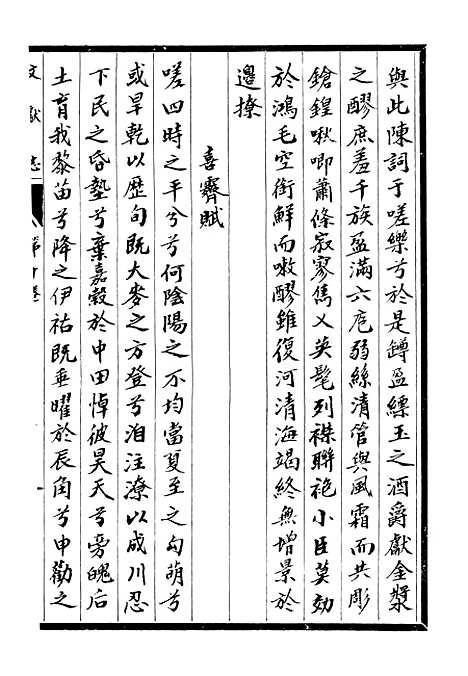 與此陳詞于嗟樂兮於是罇盈縹玉之酒爵獻金漿
之醪庶羞千族盈滿六庖弱絲清管與風霜而共彫
鎗鍠啾唧蕭條寂寥雋乂英髦列襟聯袍小臣莫効
於鴻毛空銜鮮而嗽醪雖復河清海竭終無增景於
邊撩
喜霽賦
嗟四時之平分兮何陰陽之不均當夏至之勾萌兮
或旱乾以歷旬既大麥之方登兮洎注潦以成川忍
下民之昏墊兮棄嘉穀於中田悼彼昊天兮旁魄后
土育我黎苗兮降之伊祐既垂曜於辰角兮申勸之
文獻志
第十卷